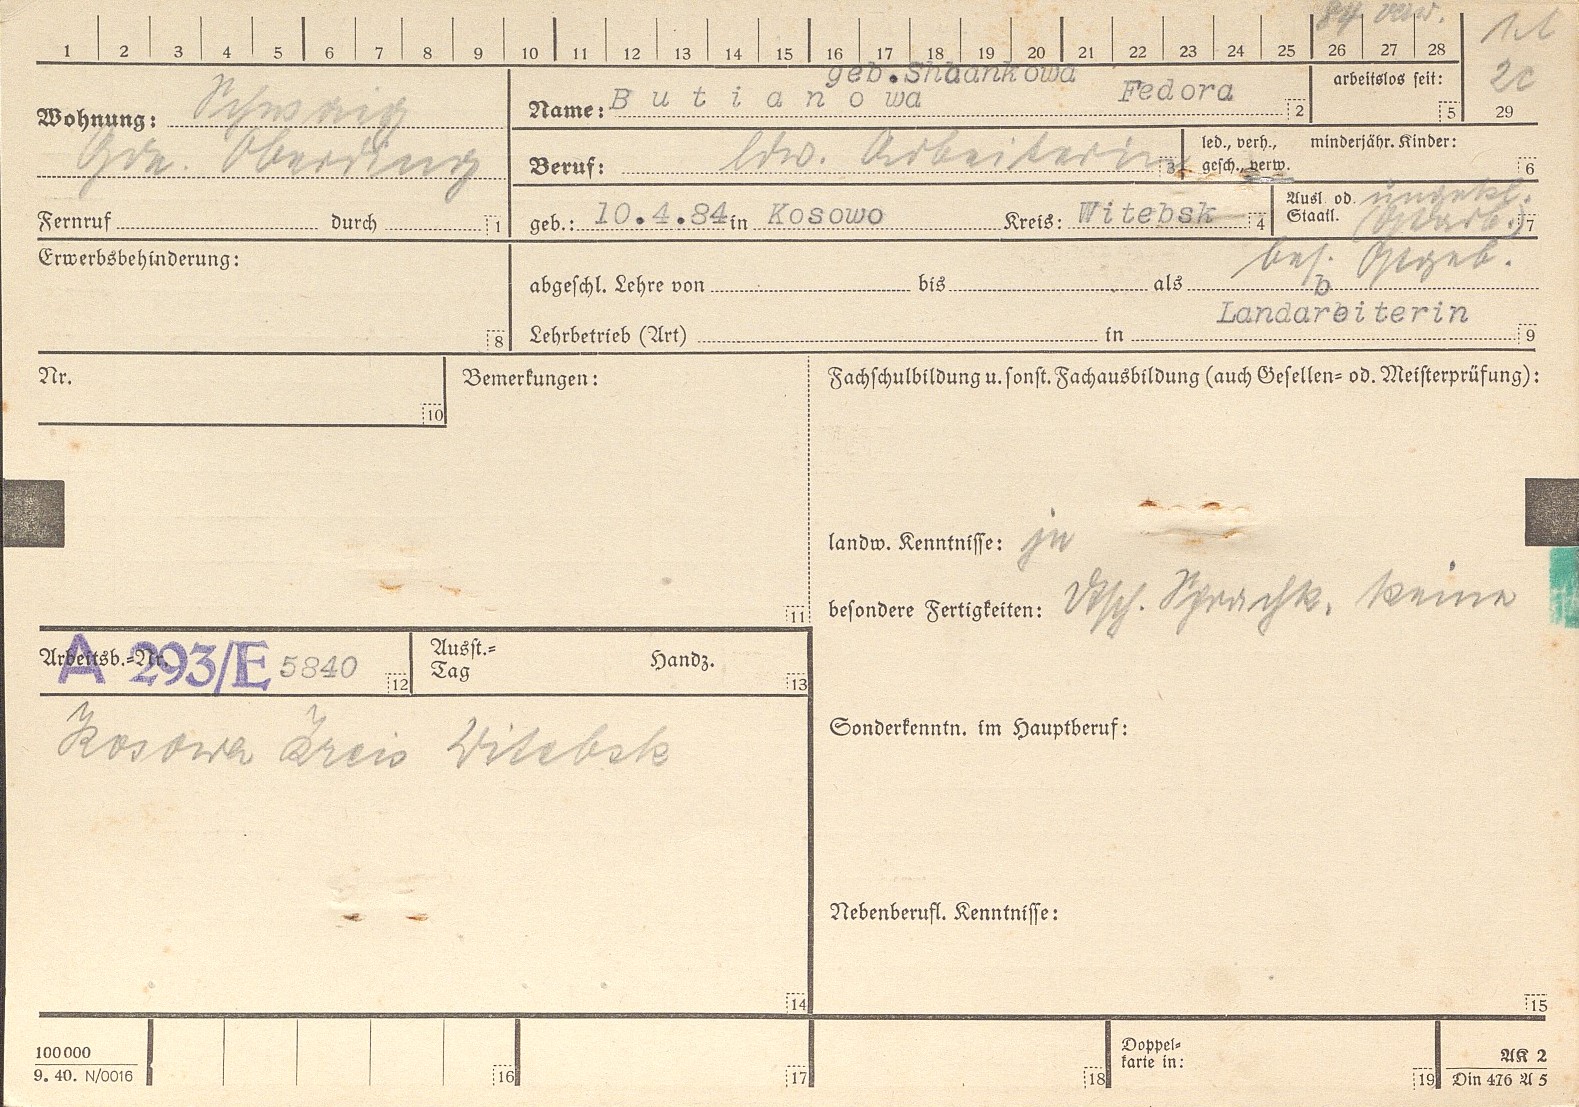 84 verw.
1 2 3 4 5 6 7 8 9 10 11 12 13 14 15 16 17 18 19 20 21 22 23 24 25 26 27 28
2c
29
Wohnung: Schwaig
Gde. Oberding
Fernruf durch 1
geb. Shdankowa
Name: Butianowa Fedora 2
arbeitslos seit: 5
Beruf: ldw. Arbeiterin 3
led., verh., gesch., verw.
minderjähr. Kinder: 6
geb.: 10.4.84 in Kosowo Kreis: Witebsk 4
Ausl. od. Staatl. ungekl.
(Ostarb.) 7
Erwerbsbehinderung: 8
bes. Ostgeb.
abgeschl. Lehre von bis als
b
Landareiterin
Lehrbetrieb (Art) in 9
Nr. 10
Bemerkungen: 11
Fachschulbildung u. sonst. Fachausbildung (auch Gesellen= od. Meisterprüfung):
landw. Kenntnisse: ja
besondere Fertigkeiten: Dtsch. Sprachk. keine
Arbeitsb.=Nr. A 293/E 5840 12
Ausst.=
Tag Handz. 13
Kosowa Kreis Witebsk
Sonderkenntn. im Hauptberuf:
Nebenberufl. Kenntnisse:
14 15
100000
9. 40. N/0016
16 17
Doppel=
karte in:
18 19
AK 2
Din 476 A 5